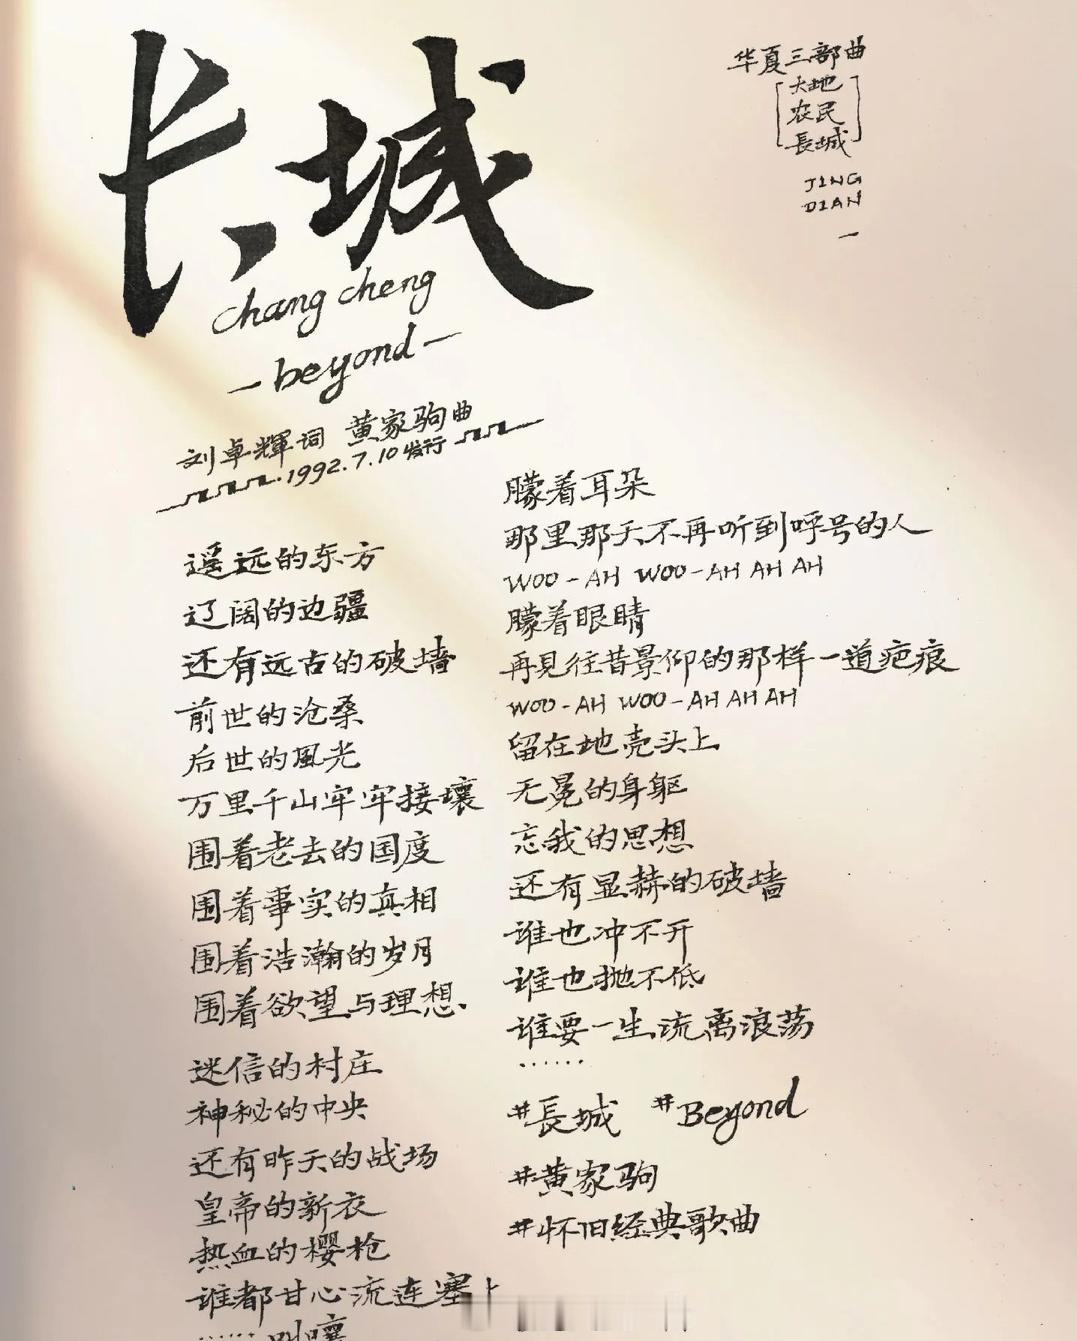 长城
chang cheng
-beyond-
刘卓輝词 黄家驹曲
1992.7.10发行
华夏三部曲
大地
农民
長城
JING
DIAN
遥远的东方
辽阔的边疆
还有远古的破墙
前世的沧桑
后世的風光
万里千山牢牢接壤
围着老去的国度
围着事实的真相
围着浩瀚的岁月
围着欲望与理想.
迷信的村庄
神秘的中央
还有昨天的战场
皇帝的新衣
热血的樱枪
谁都甘心流连塞上
……叫嚷
朦着耳朵
那里那天不再听到呼号的人
WOO-AH WOO-AH AH AH
朦着眼睛
再見往昔景仰的那样一道疤痕
WOO-AH WOO-AH AH AH
留在地壳头上
无冕的身躯
忘我的思想
还有显赫的破墙
谁也冲不开
谁也抛不低
谁要一生流离浪荡
……
#長城 #Beyond
#黄家驹
#怀旧经典歌曲